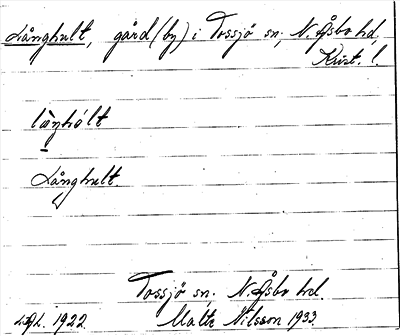 Långhult, gård (by) i Tossjö sn, N. Åsbo hd,
Krist. l.
Långhult.
Tossjö sn, N. Åsbo hd.
1922. Malte Nilsson 1933